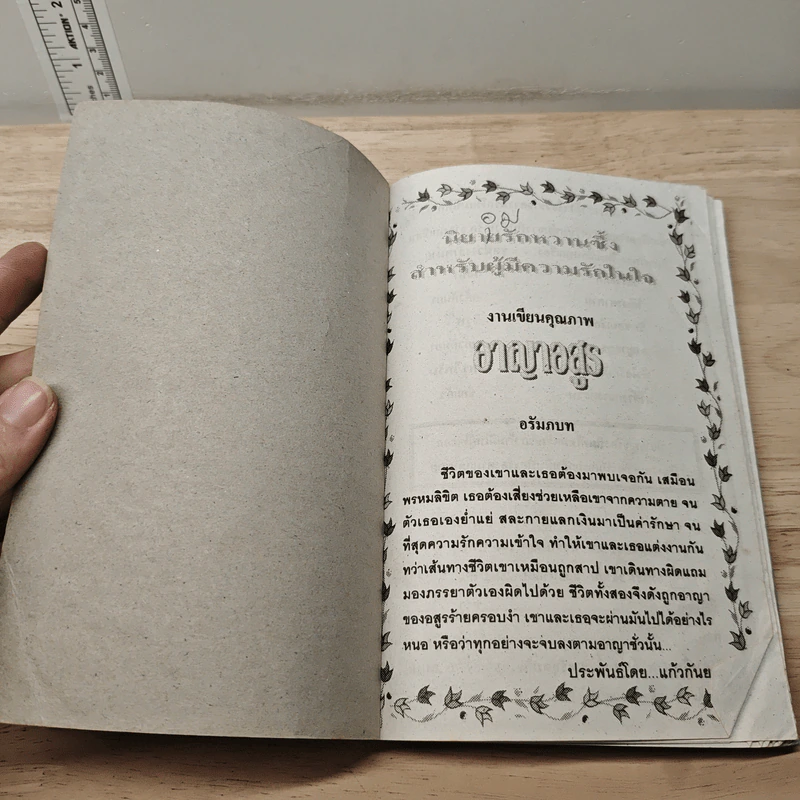 AKTION
อม
นิยายรักหวานซึ้ง
สำหรับผู้มีความรักในใจ
งานเขียนคุณภาพ
อาญาอสูร
อรัมภบท
ชีวิตของเขาและเธอต้องมาพบเจอกัน เสมือน
พรหมลิขิต เธอต้องเสี่ยงช่วยเหลือเขาจากความตาย จน
ตัวเธอเองย่ำแย่ สละกายแลกเงินมาเป็นค่ารักษา จน
ที่สุดความรักความเข้าใจ ทำให้เขาและเธอแต่งงานกัน
ทว่าเส้นทางชีวิตเขาเหมือนถูกสาป เขาเดินทางผิดแถม
มองภรรยาตัวเองผิดไปด้วย ชีวิตทั้งสองจึงดังถูกอาญา
ของอสูรร้ายครอบงำ เขาและเธอจะผ่านมันไปได้อย่างไร
หนอ หรือว่าทุกอย่างจะจบลงตามอาญาชั่วนั้น...
ประพันธ์โดย...แก้วกันย